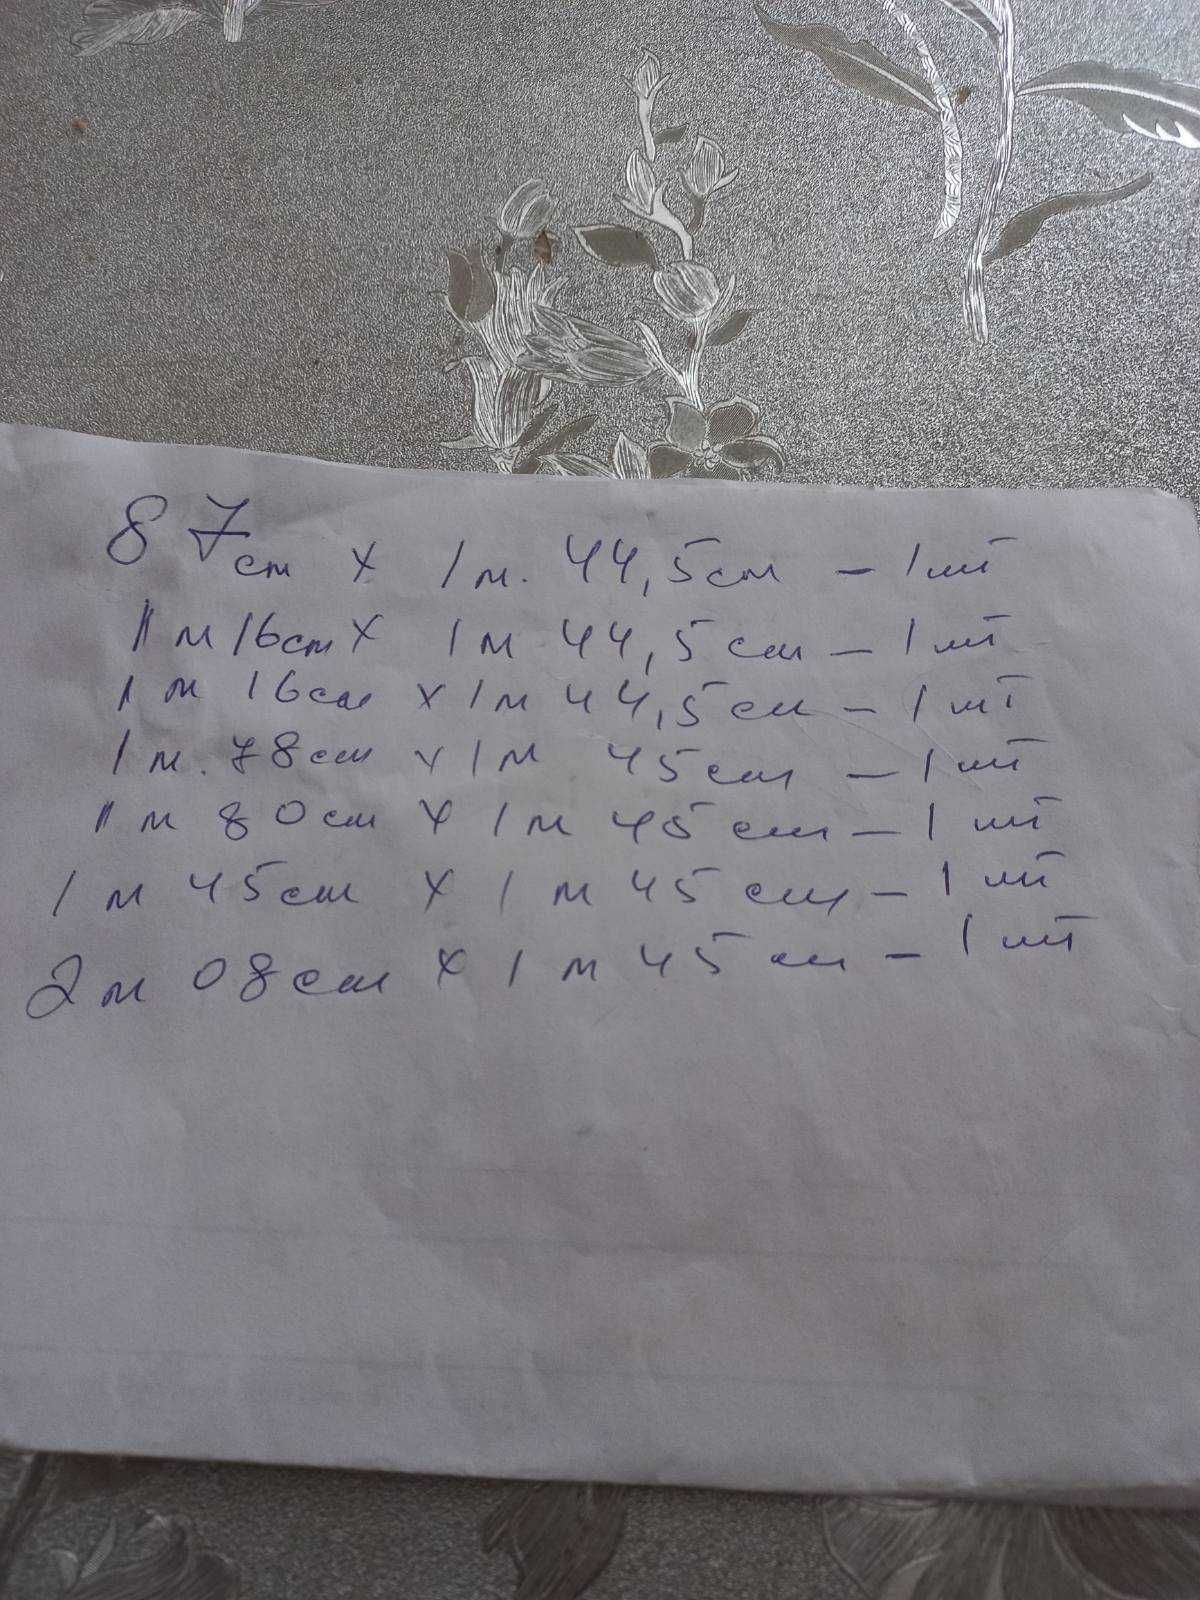 87см х 1м. 44,5см – 1шт
1м 16см х 1м 44,5см – 1шт
1м 16см х 1м 44,5см – 1шт
1м. 78см х 1м 45см – 1шт
1м 80см х 1м 45см – 1шт
1м 45см х 1м 45см – 1шт
2м 08см х 1м 45см – 1шт